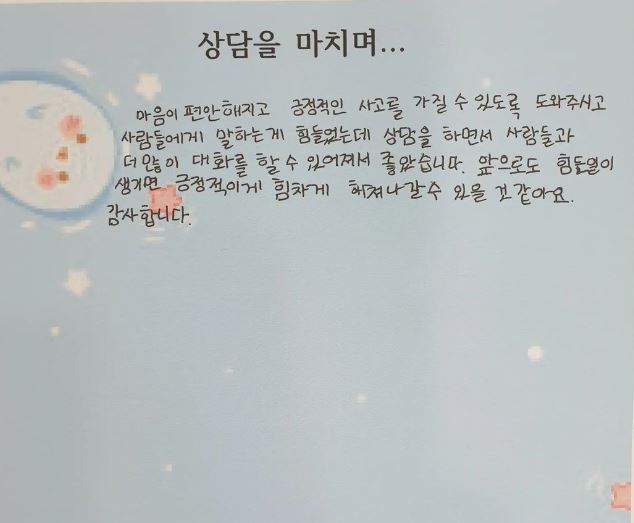 상담을 마치며...
마음이 편안해지고 긍정적인 사고를 가질 수 있도록 도와주시고
사람들에게 말하는게 힘들었는데 상담을 하면서 사람들과
더 많이 대화를 할 수 있어져서 좋았습니다. 앞으로도 힘든일이
생기면 긍정적이게 힘차게 헤쳐나갈수 있을 것 같아요.
감사합니다.